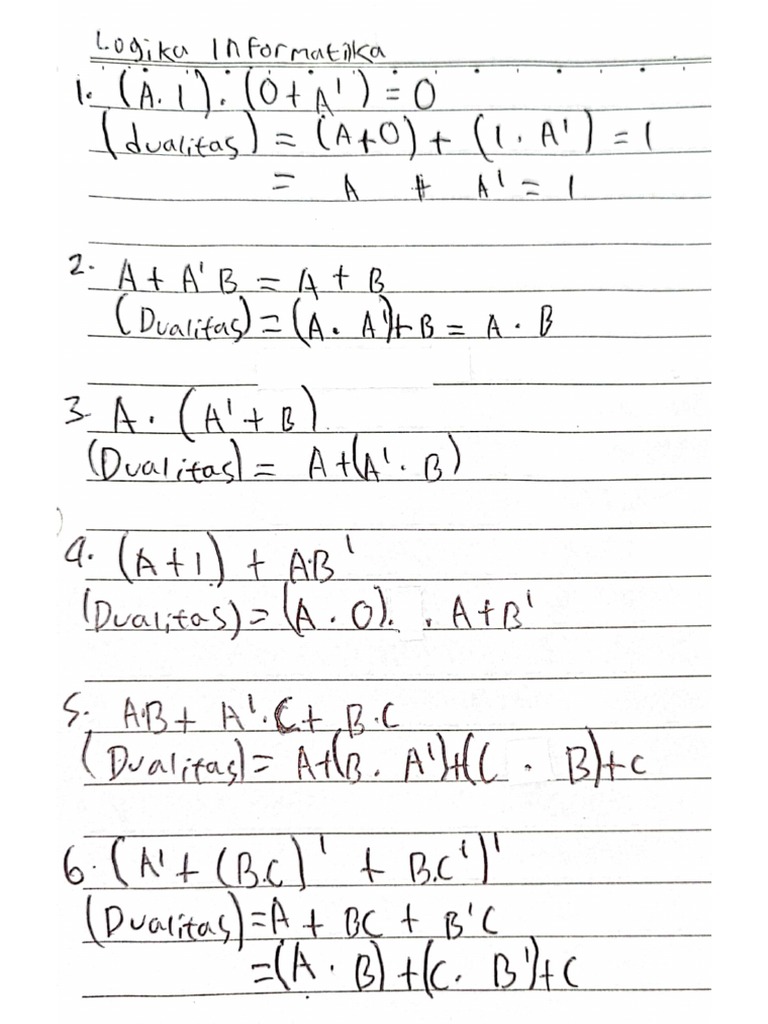 Logika Informatika
1. (A. 1) . (0 + A') = 0
(dualitas) = (A+0) + (1 . A') = 1
= A + A' = 1
2. A + A' B = A + B
(Dualitas) = (A . A')+B = A . B
3. A . (A' + B)
(Dualitas) = A+(A' . B)
4. (A+1) + A.B'
(Dualitas) = (A . 0). . A+B'
5. A.B + A'.C + B.C
(Dualitas) = A+(B . A')+(C . B)+C
6. (A' + (B.C)' + B.C')'
(Dualitas) = A + BC + B'C
= (A . B) + (C . B')+C